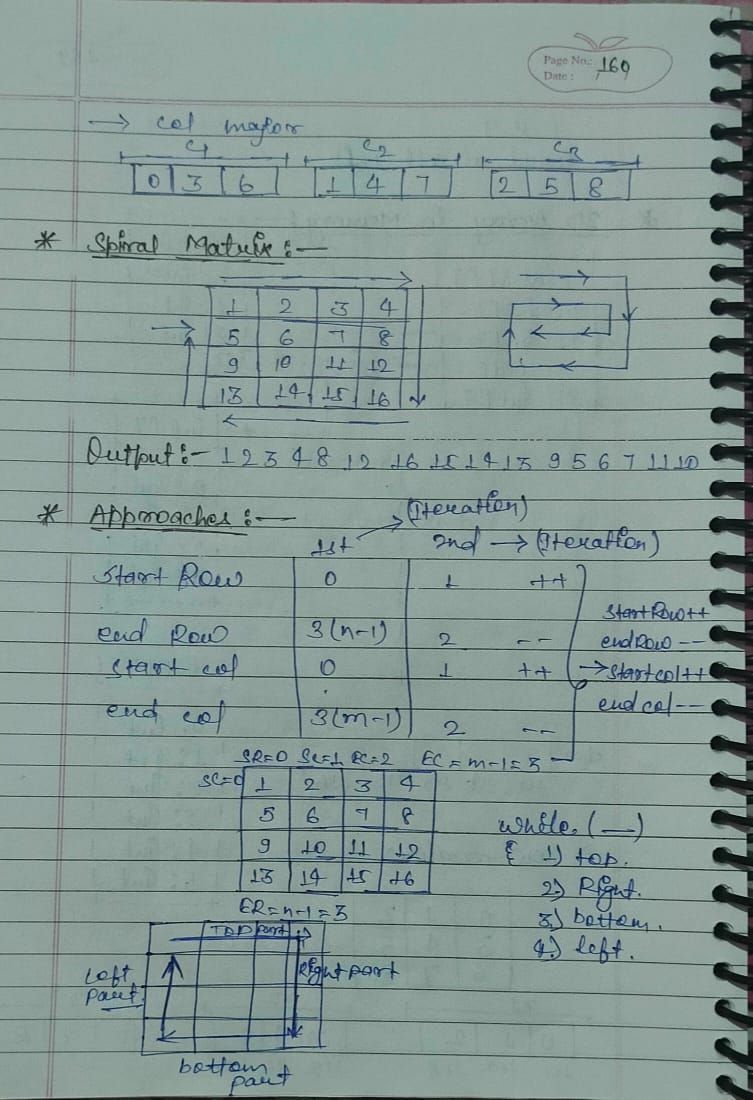 Page No.: 160
Date :
→ col major
C1 C2 C3
0 3 6 1 4 7 2 5 8
* Spiral Matrix :—
1 2 3 4
5 6 7 8
9 10 11 12
13 14 15 16
Output :- 1 2 3 4 8 12 16 15 14 13 9 5 6 7 11 10
* Approaches :—
1st → (Iteration) 2nd → (Iteration)
Start Row 0 1 ++
end Row 3(n-1) 2 --
start col 0 1 ++
end col 3(m-1) 2 --
startRow++
endRow--
→ startcol++
endcol--
SR=0 SC=1 EC=2 EC=m-1=3
SC=0 1 2 3 4
5 6 7 8
9 10 11 12
13 14 15 16
ER=n-1=3
while (—)
{ 1) top.
2) Right.
3) bottom.
4) left.
Top part
Left part
Right part
bottom part